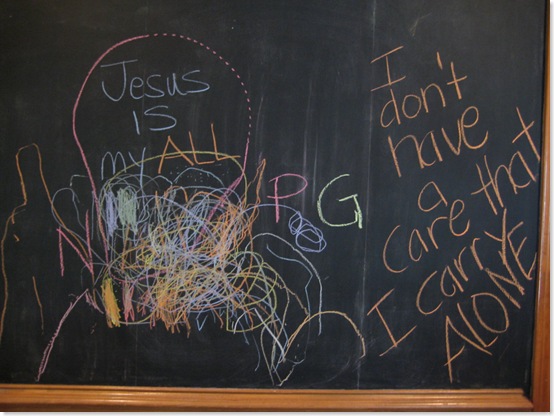 Jesus
IS
my ALL
N
P
G
I
don't
have
a
care that
I carry
ALONE